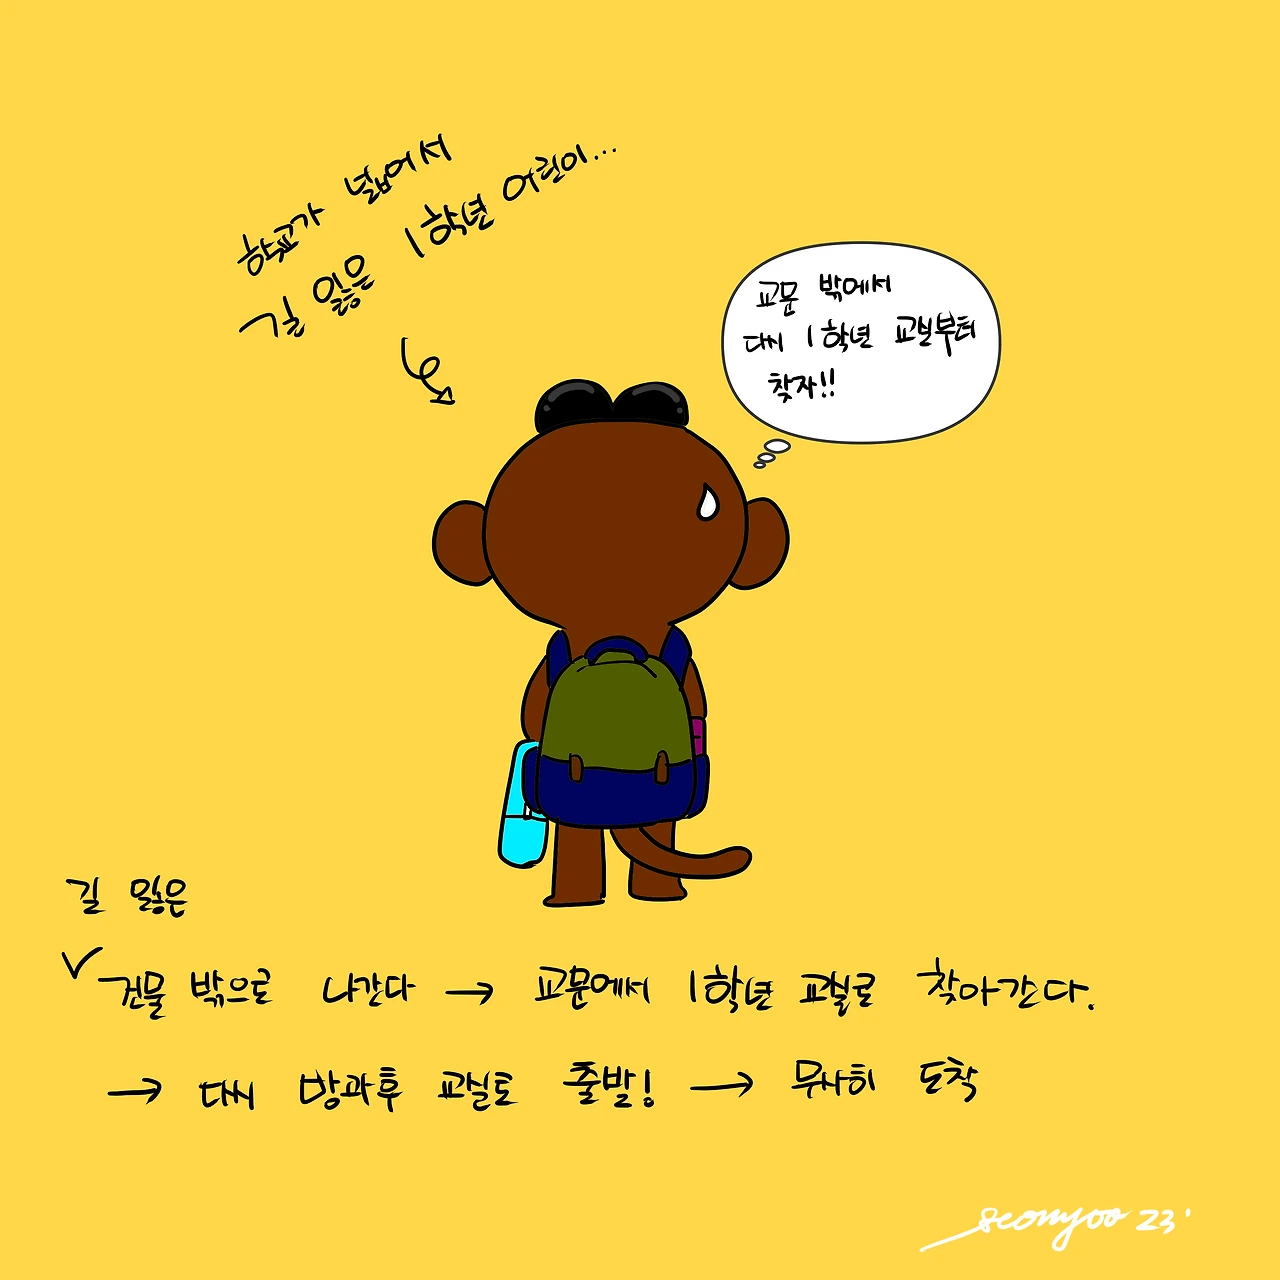 학교가 넓어서
길 잃은 1학년 어린이...
교문 밖에서
다시 1학년 교실부터
찾자!!
길 잃은
✓ 건물 밖으로 나간다 → 교문에서 1학년 교실로 찾아간다.
→ 다시 방과후 교실로 출발! → 무사히 도착
seonyoo 23'